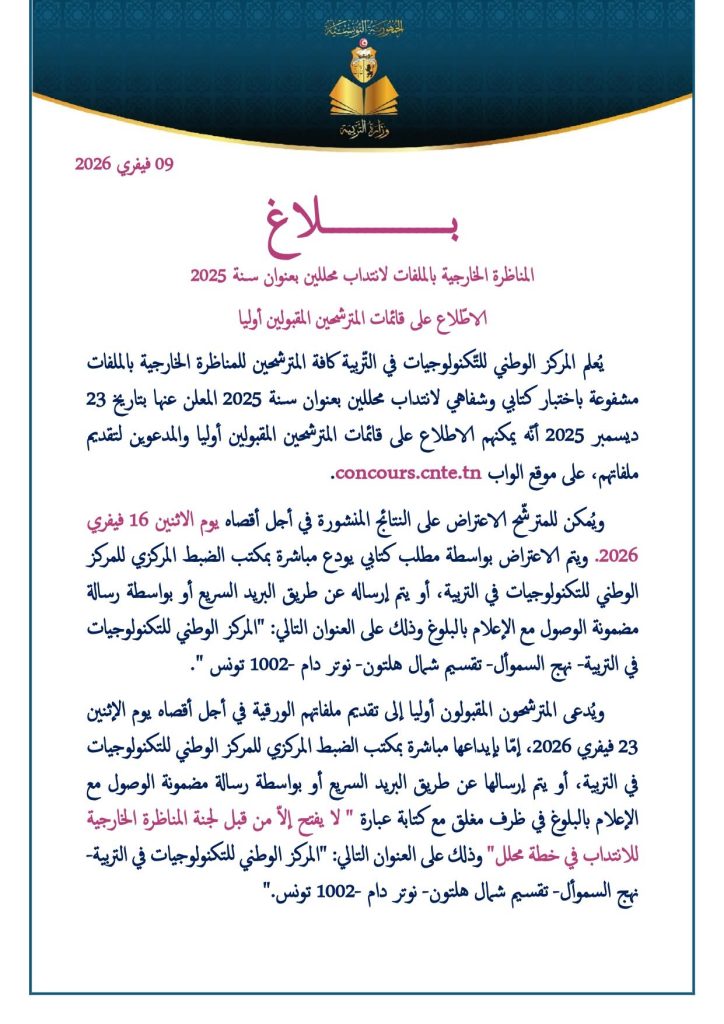 الجمهورية التونسية
وزارة التربية
09 فيفري 2026
بـــــــــلاغ
المناظرة الخارجية بالملفات لانتداب محللين بعنوان سنة 2025
الاطّلاع على قائمات المترشحين المقبولين أوليا
يُعلم المركز الوطني للتّكنولوجيات في التّربية كافة المترشحين للمناظرة الخارجية بالملفات
مشفوعة باختبار كتابي وشفاهي لانتداب محللين بعنوان سنة 2025 المعلن عنها بتاريخ 23
ديسمبر 2025 أنّه يمكنهم الاطلاع على قائمات المترشحين المقبولين أوليا والمدعوين لتقديم
ملفاتهم، على موقع الواب concours.cnte.tn.
ويُمكن للمترشّح الاعتراض على النتائج المنشورة في أجل أقصاه يوم الاثنين 16 فيفري
2026. ويتم الاعتراض بواسطة مطلب كتابي يودع مباشرة بمكتب الضبط المركزي للمركز
الوطني للتكنولوجيات في التربية، أو يتم إرساله عن طريق البريد السريع أو بواسطة رسالة
مضمونة الوصول مع الإعلام بالبلوغ وذلك على العنوان التالي: "المركز الوطني للتكنولوجيات
في التربية- نهج السموأل- تقسيم شمال هلتون- نوتر دام -1002 تونس ".
ويُدعى المترشحون المقبولون أوليا إلى تقديم ملفاتهم الورقية في أجل أقصاه يوم الإثنين
23 فيفري 2026، إمّا بإيداعها مباشرة بمكتب الضبط المركزي للمركز الوطني للتكنولوجيات
في التربية، أو يتم إرسالها عن طريق البريد السريع أو بواسطة رسالة مضمونة الوصول مع
الإعلام بالبلوغ في ظرف مغلق مع كتابة عبارة " لا يفتح إلاّ من قبل لجنة المناظرة الخارجية
للانتداب في خطة محلل" وذلك على العنوان التالي: "المركز الوطني للتكنولوجيات في التربية-
نهج السموأل- تقسيم شمال هلتون- نوتر دام -1002 تونس."